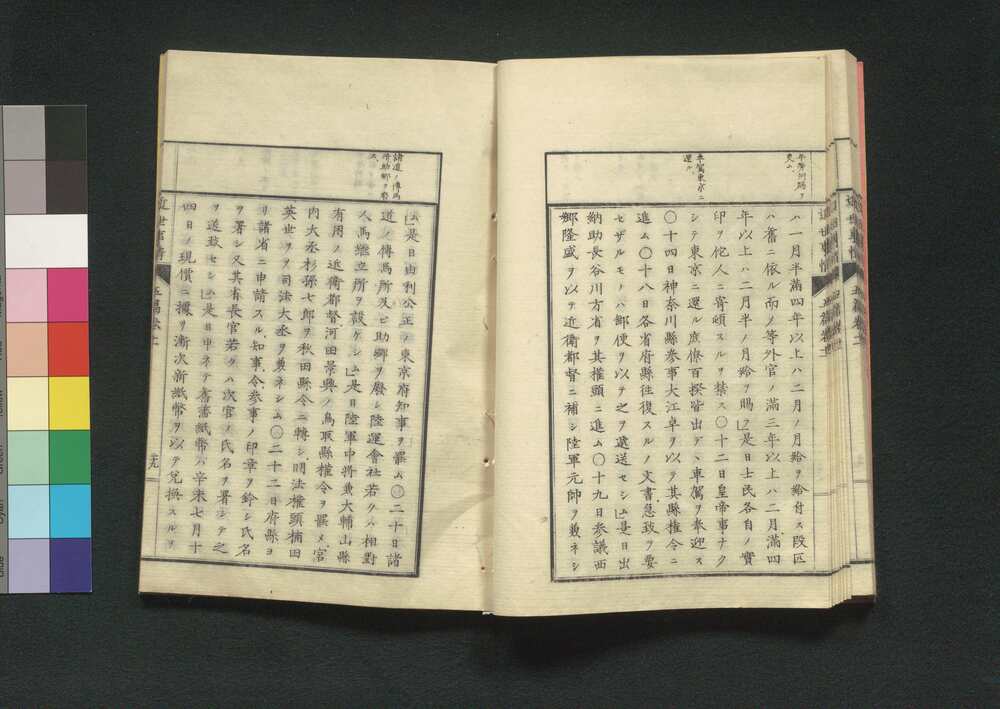 車駕東京ニ
還ル
ハ一月半滿四年以上ハ二月ノ月給ヲ給付ス段区
ハ舊ニ依ル而ノ等外官ノ滿三年以上ハ二月滿四
年以上ハ二月半ノ月給ヲ賜フ○是日士民各自ノ實
印ヲ佗人ニ寄頓スルヲ禁ス○十二日皇帝事ナク
シテ東京ニ還ル庶僚百揆皆出デ、車駕ヲ奉迎ス
○十四日神奈川縣參事大江卓ヲ以テ其縣權令ニ
進ム○十八日各省府縣往復スルノ文書急致ヲ要
セザルモノハ郵便ヲ以テ之ヲ遞送セシム是日出
納助長谷川方省ヲ其權頭ニ進ム○十九日參議西
郷隆盛ヲ以テ近衛都督ニ補シ陸軍元帥ヲ兼ネシ
諸道ノ傳馬
所助郷ヲ廢
ス
ム是日由利公正ノ東京府知事ヲ罷ム○二十日諸
道ノ傳馬所及ビ助郷ヲ廢シ陸運會社若クハ相對
人馬繼立所ヲ設ケシム是日陸軍中將兼大輔山縣
有朋ノ近衛都督河田景與ノ鳥取縣權令ヲ罷メ宮
内大丞杉孫七郎ヲ秋田縣令ニ轉シ明法權頭楠田
英世ヲ司法大丞ヲ兼ネシム○二十二日府縣ヨ
リ諸省ニ申請スル知事令參事ノ印章ヲ鈐シ氏名
ヲ署シ又其省長官若クハ次官ノ氏名ヲ署シテ之
ヲ送致セシム是日申ネテ舊藩紙幣ハ辛未七月十
四日ノ現價ニ據リ漸次新紙幣ヲ以テ兌換スルヲ
近世事情
五篇卷上
十九